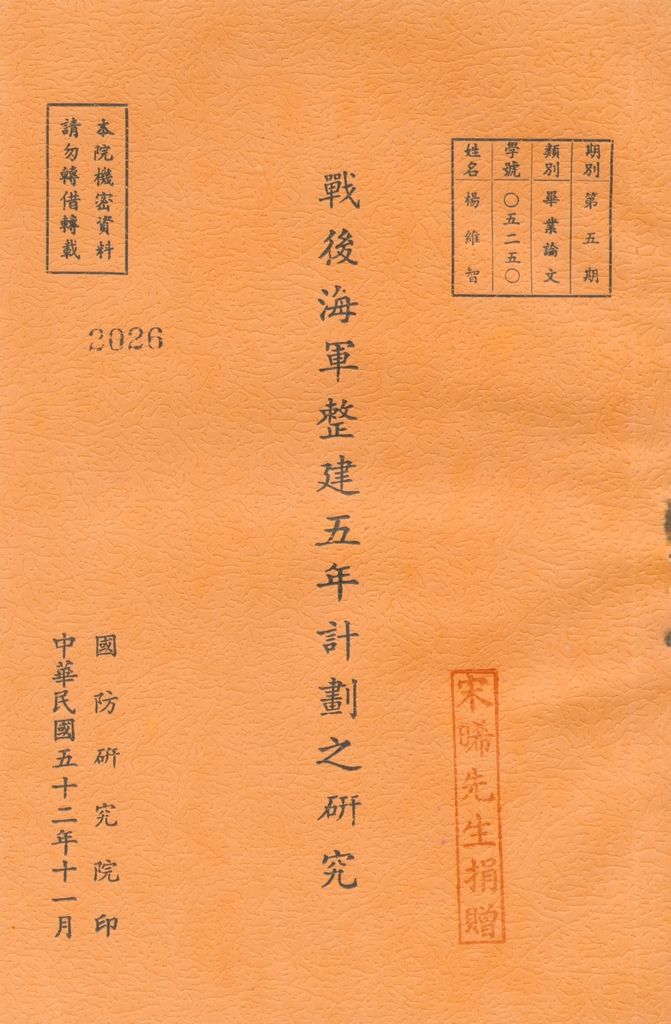 期別 第五期
類別 畢業論文
學號 〇五二五〇
姓名 楊維智
戰後海軍整建五年計劃之硏究
本院機密資料
請勿轉借轉載
2026
國防硏究院印
中華民國五十二年十一月
宋晞先生捐贈